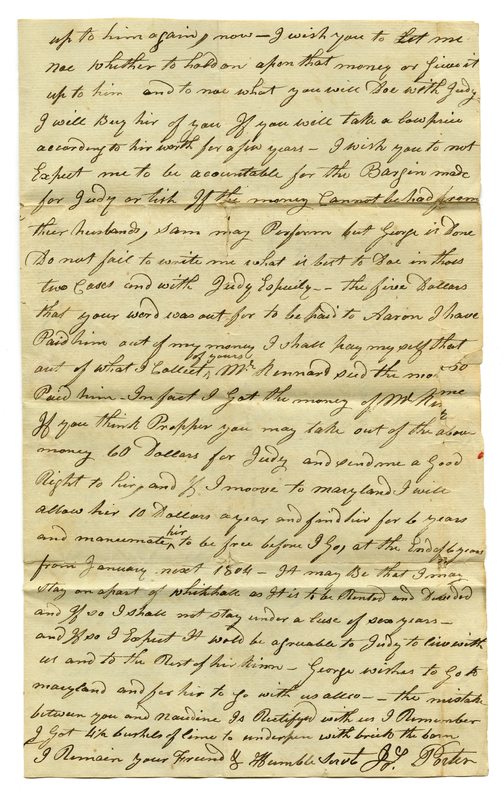 up to him again, now — I wish you to let me
noe whether to hold on apon that money or Give it
up to him and to noe what you will Doe with Judy
I will Buy hir of you If you will take a low price
according to hir worth for a few years — I wish you to not
Expect me to be accountable for the Bargin made
for Judy or lish If the money Cannot be had from
thier husbands, sam may Perform but George is Done
Do not fail to write me what is best to Doe in thos
two Cases and with Judy Espcily -- the five Dollars
that your word was out for to be paid to Aaron I have
Paid him out of my money I shall pay my self that
out of what I Collect of yours, Mr. Kennard sed the mo
Paid him - Infact I Got the money of Mr
If you think Propper you may take out of the above
money 60 Dollars for Judy and send me a Good
Right to hir, and If I moove to maryland I will
allow her 10 Dollars a year and find hir for 6 years
and maneumate hir to be free before I Go, at the End of 6 years
from January next 1804 — It may Be that I may
stay on apart of whitehall as It is to be Rented and Devided
and If so I shall not stay under a lease of six years —
and If so I Expect It wold be agreable to Judy to live with
us and to the Rest of hir kinn — George wishes to Go to
maryland and for hir to go with us allso — the mistake
between you and naudine Is Rectifyed with us I Remember
I Got 4½ bushels of lime to underpen with brick the barn
I Remain your Friend & Humble Servt Porter